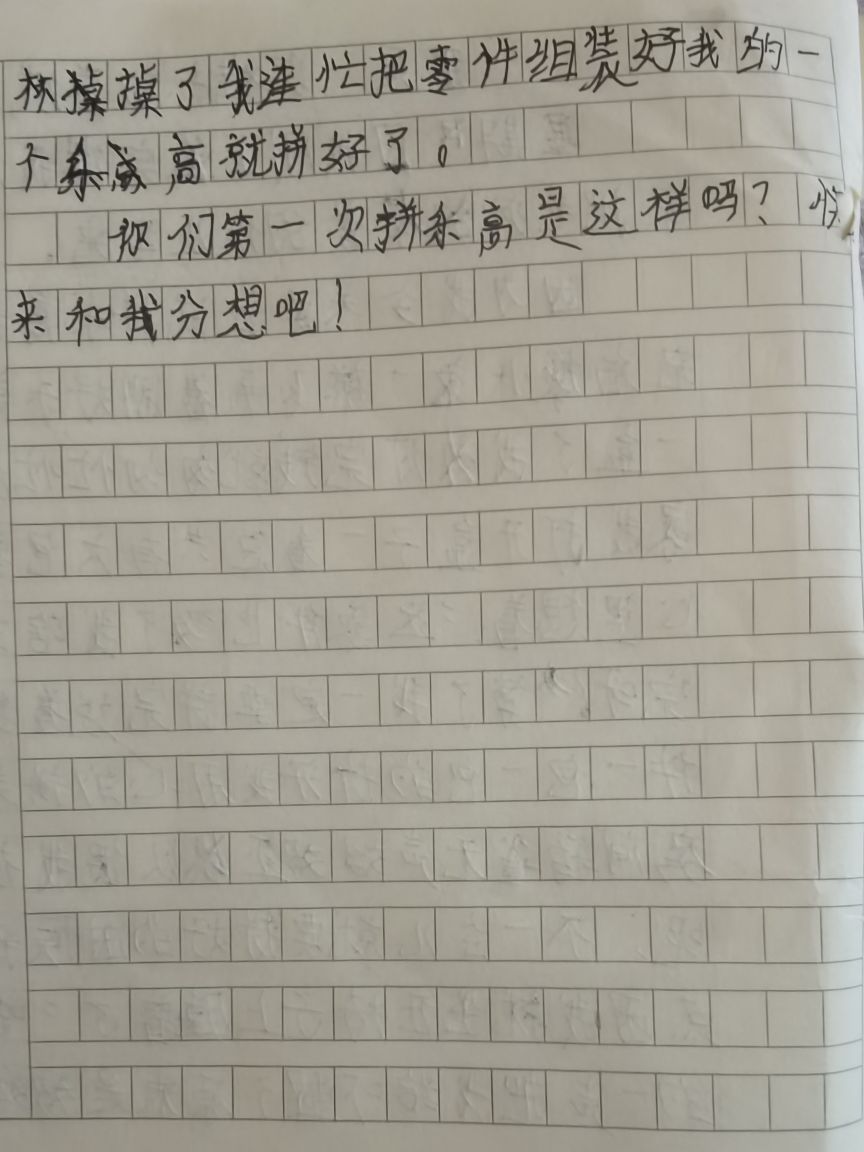 掉掉了我连忙把零件组装好我的一
个乐高就拼好了。
你们第一次拼乐高是这样吗？快
来和我分想吧！